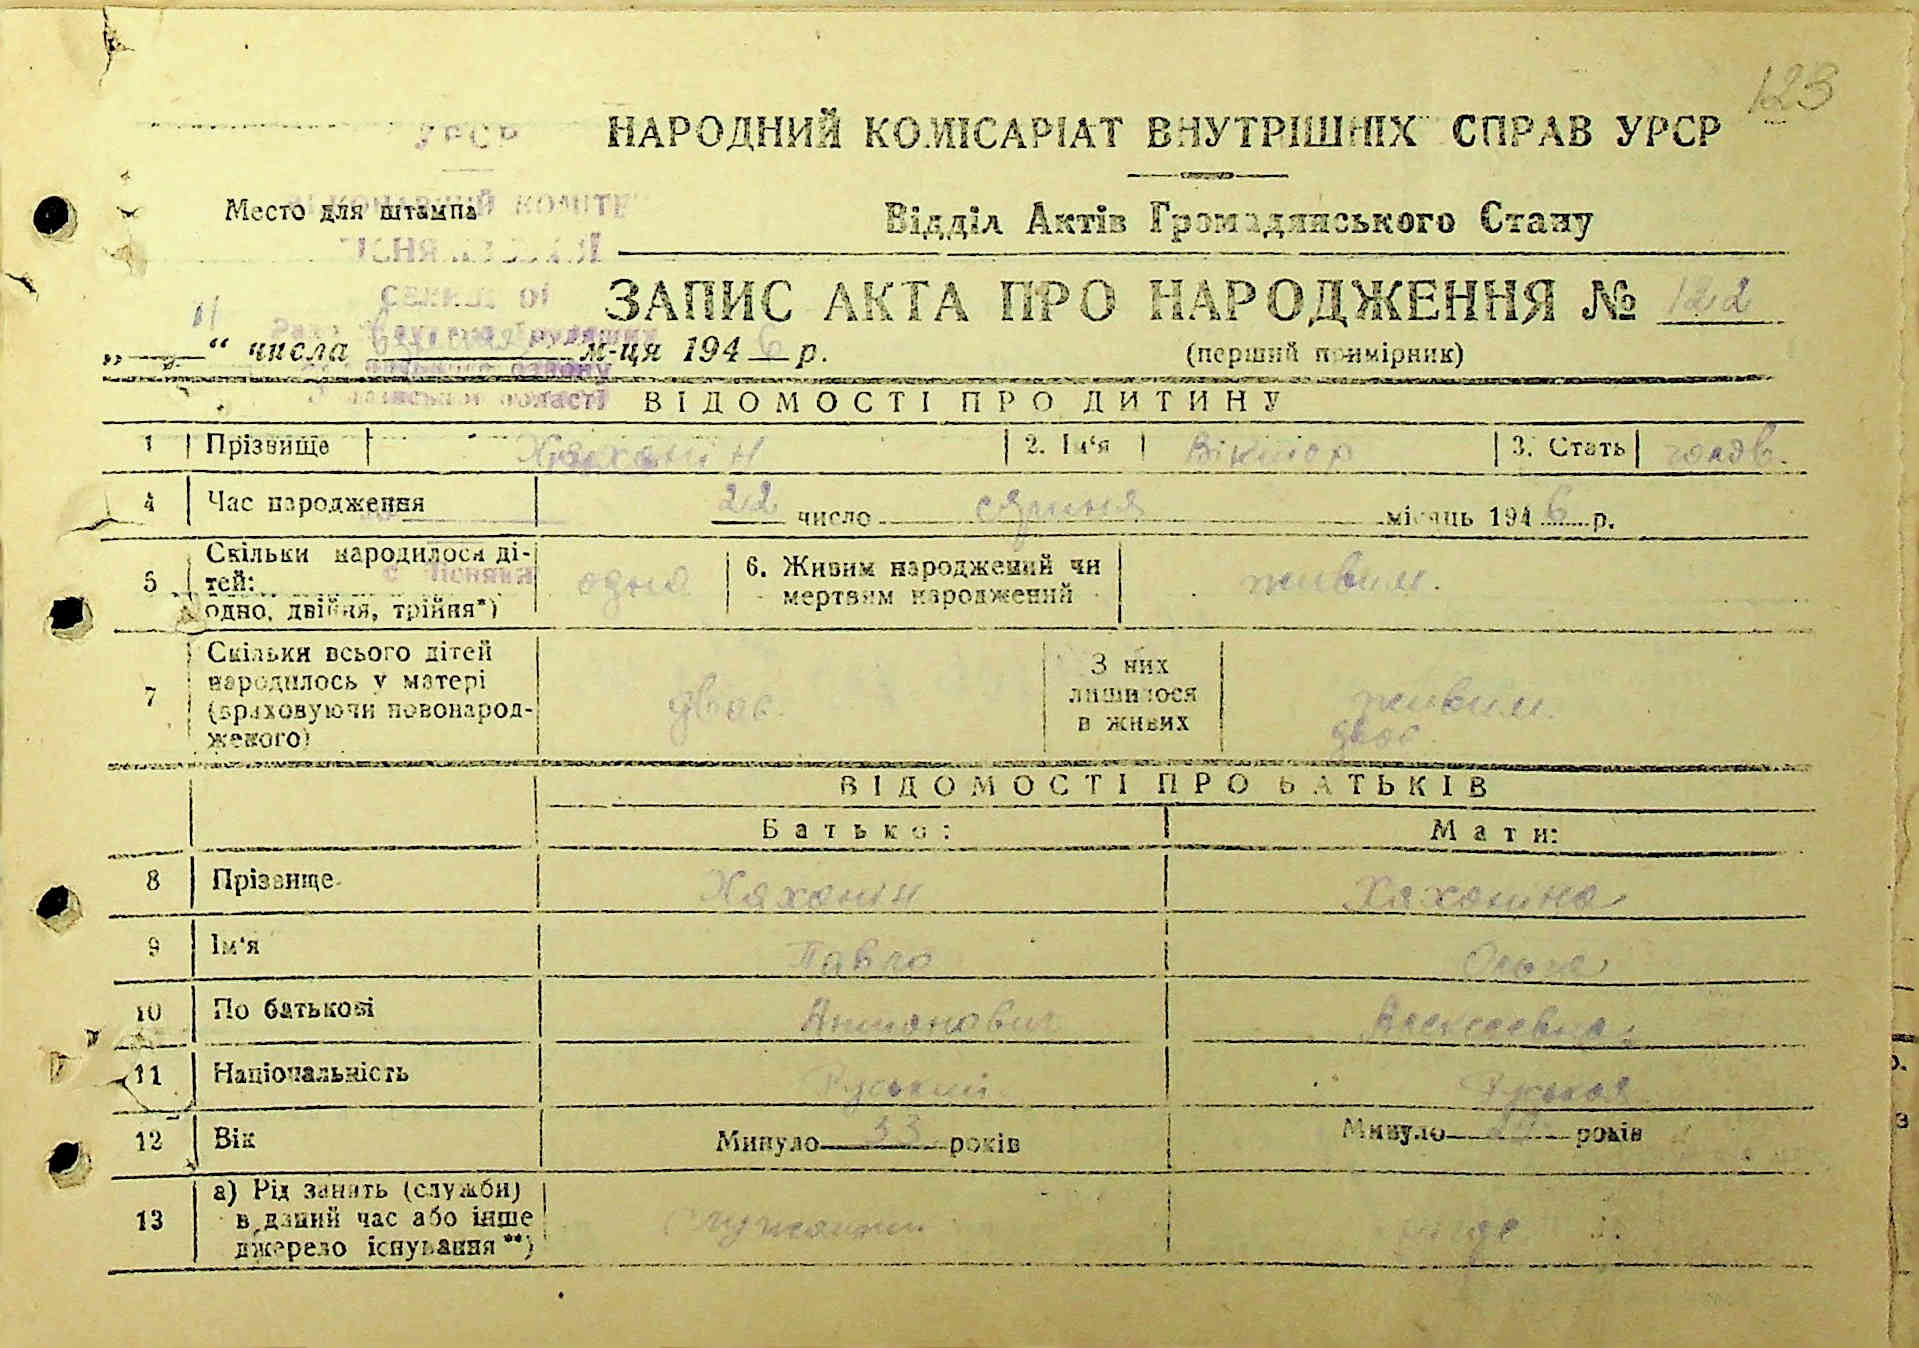 123
УРСР
НАРОДНИЙ КОМІСАРІАТ ВНУТРІШНІХ СПРАВ УРСР
Место для штампа
Відділ Актів Громадянського Стану
ЗАПИС АКТА ПРО НАРОДЖЕННЯ № 122
„ “ числа м-ця 1946 р.
(перший примірник)
області
ВІДОМОСТІ ПРО ДИТИНУ
1 Прізвище Хаханін 2. Ім'я Віктор 3. Стать чолов.
4 Час народження 22 число серпня місяць 1946 р.
5 Скільки народилося ді-
тей:
одно, двійня, трійня*) одна
6. Живим народжений чи
мертвим народжений живим.
7 Скільки всього дітей
народилось у матері
(враховуючи новонарод-
женого) двоє.
З них
лишилося
в живих живим.
двоє.
ВІДОМОСТІ ПРО БАТЬКІВ
Батько: Мати:
8 Прізвище Хаханін Хаханіна
9 Ім'я Павло Ольга
10 По батькові Антонович Алексеевна
11 Національність Руський Руская
12 Вік Минуло 33 років Минуло років
13 а) Рід занять (служби)
в даний час або інше
джерело існування**) служащий